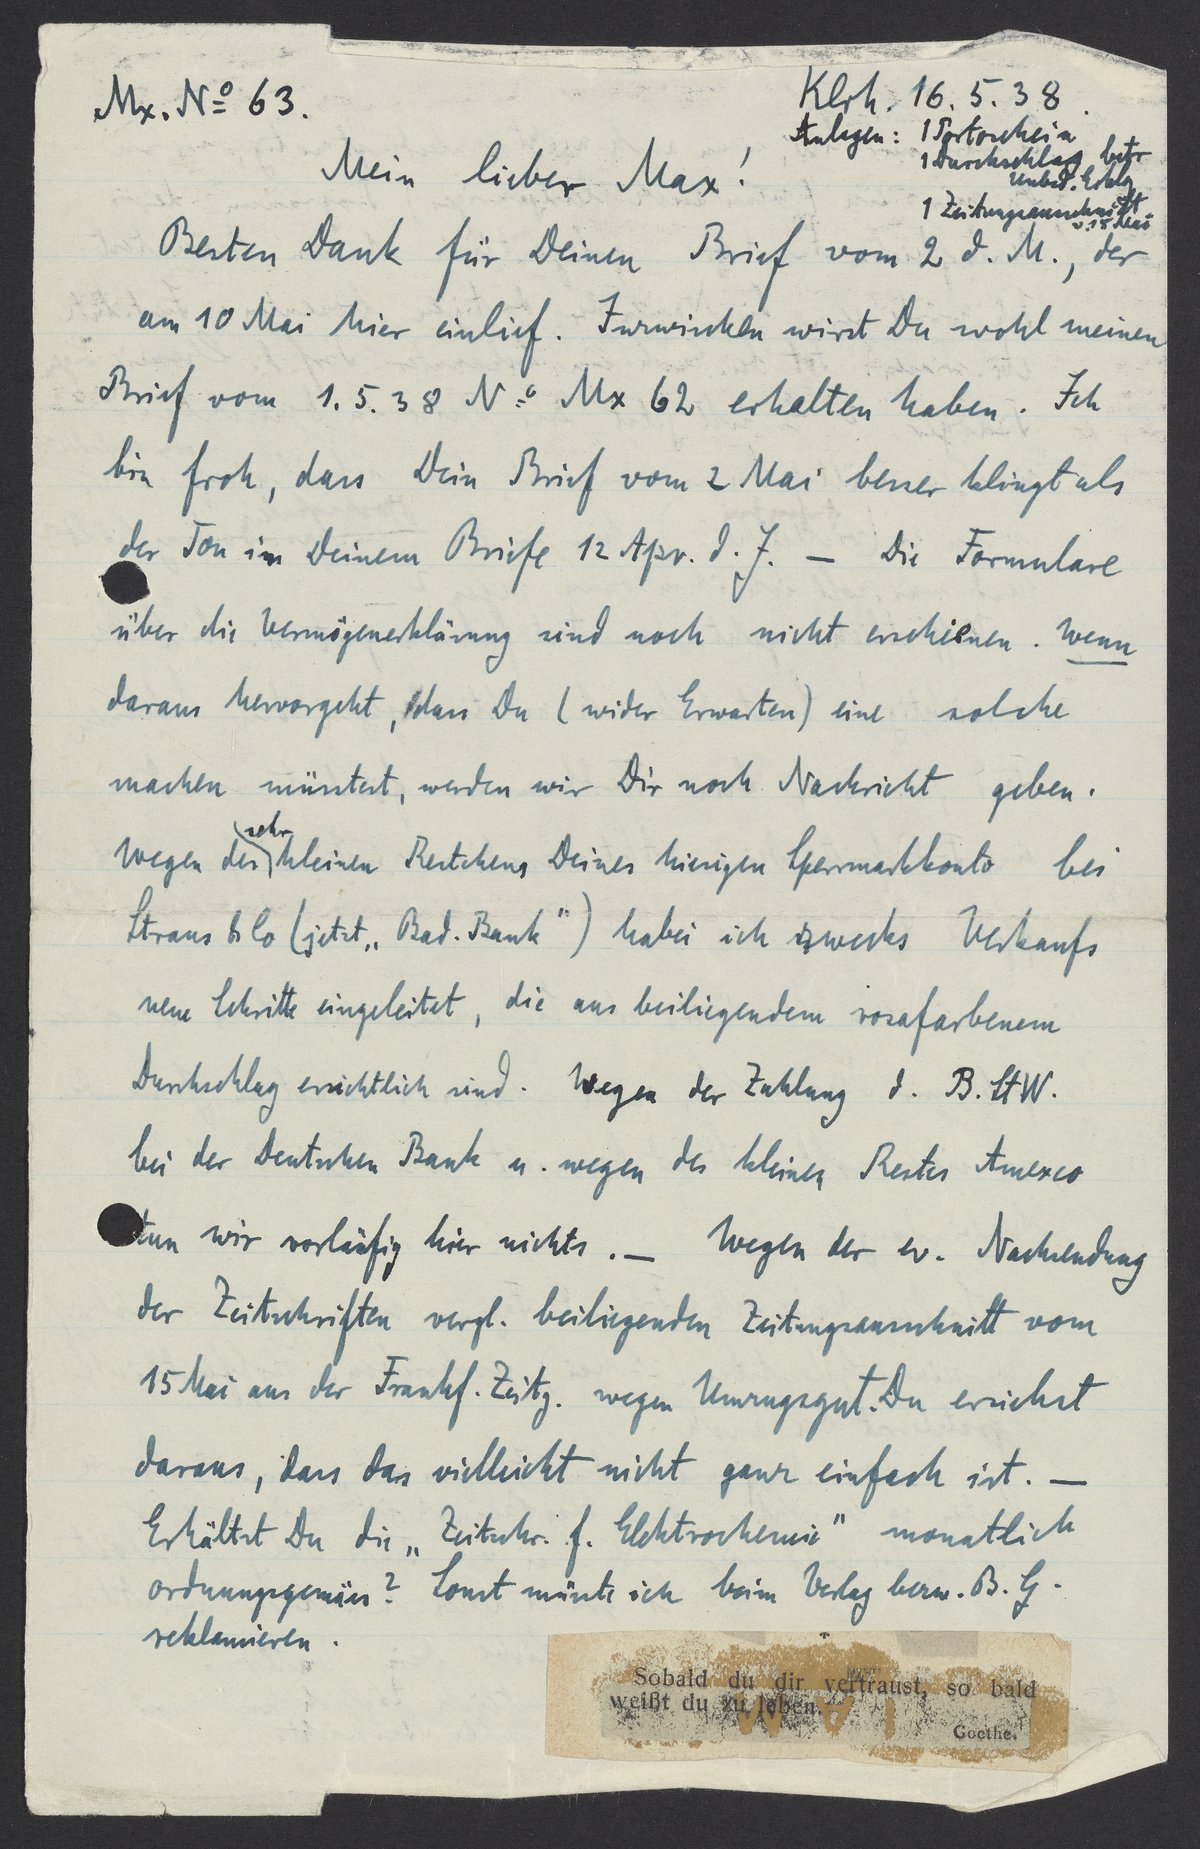 Mx. No 63.
Klrh. 16.5.38.
Anlagen: 1 Portoschein
1 Durchschlag betr
Unbed. Erklg
1 Zeitungsausschnitt
v. 15 Mai
Mein lieber Max!
Besten Dank für Deinen Brief vom 2 d. M., der
am 10 Mai hier einlief. Inzwischen wirst Du wohl meinen
Brief vom 1.5.38 No Mx 62 erhalten haben. Ich
bin froh, dass Dein Brief vom 2 Mai besser klingt als
der Ton in Deinem Briefe 12 Apr. d. J. — Die Formulare
über die Vermögenerklärung sind noch nicht erschienen. Wenn
daraus hervorgeht, dass Du (wider Erwarten) eine solche
machen müsstest, werden wir Dir noch Nachricht geben.
Wegen des sehr kleinen Restchens Deines hiesigen Sperrmarkkonto bei
Straus & Co (jetzt „Bad. Bank") habe ich zwecks Verkaufs
neue Schritte eingeleitet, die aus beiliegendem rosafarbenem
Durchschlag ersichtlich sind. Wegen der Zahlung d. B. St W.
bei der Deutschen Bank u. wegen des kleinen Restes Amexco
tun wir vorläufig hier nichts. — Wegen der ev. Nachsendung
der Zeitschriften vergl. beiliegenden Zeitungsausschnitt vom
15 Mai aus der Frankf. Zeitg. wegen Umzugsgut. Du ersiehst
daraus, dass das vielleicht nicht ganz einfach ist. —
Erhältst Du die „Zeitschr. f. Elektrochemie" monatlich
ordnungsgemäss? Sonst müsste ich beim Verlag bezw. B. G.
reklamieren.
Sobald du dir vertraust, so bald
weißt du zu leben.
Goethe.